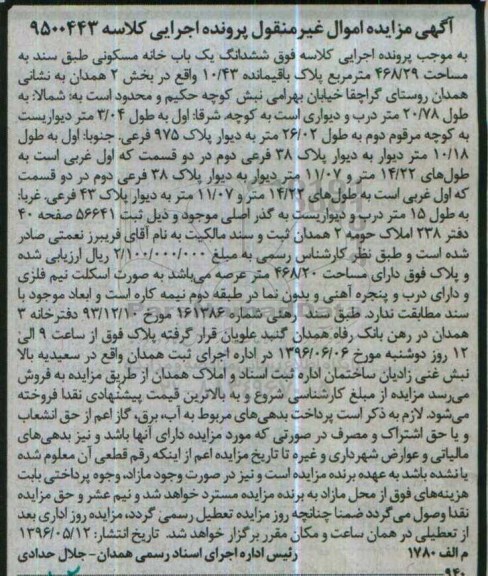 آگهی مزایده اموال غیرمنقول پرونده اجرایی کلاسه ۹۵۰۰۴۴۳
به موجب پرونده اجرایی کلاسه فوق ششدانگ یک باب خانه مسکونی طبق سند به
مساحت ۴۶۸/۲۹ مترمربع پلاک باقیمانده ۱۰/۴۳ واقع در بخش ۲ همدان به نشانی
همدان روستای گراچقا خیابان بهرامی نبش کوچه حکیم و محدود است به؛ شمالا: به
طول ۲۰/۷۸ متر درب و دیواری است به کوچه، شرقا: اول به طول ۳/۰۴ متر دیواریست
به کوچه مرقوم دوم به طول ۲۶/۰۲ متر به دیوار پلاک ۹۷۵ فرعی. جنوبا: اول به طول
۱۰/۱۸ متر دیوار به دیوار پلاک ۳۸ فرعی دوم در دو قسمت که اول غربی است به
طول‌های ۱۴/۲۲ متر و ۱۱/۰۷ متر دیوار به دیوار پلاک ۳۸ فرعی دوم در دو قسمت
که اول غربی است به طول‌های ۱۴/۲۲ متر و ۱۱/۰۷ متر به دیوار پلاک ۴۳ فرعی. غربا:
به طول ۱۵ متر درب و دیواریست به گذر اصلی موجود و ذیل ثبت ۵۶۶۴۱ صفحه ۴۰
دفتر ۲۳۸ املاک حومه ۲ همدان ثبت و سند مالکیت به نام آقای فریبرز نعمتی صادر
شده است و طبق نظر کارشناس رسمی به مبلغ ۲/۱۰۰/۰۰۰/۰۰۰ ریال ارزیابی شده
و پلاک فوق دارای مساحت ۴۶۸/۲۰ متر عرصه می‌باشد به صورت اسکلت نیم فلزی
و دارای درب و پنجره آهنی و بدون نما در طبقه دوم نیمه کاره است و ابعاد موجود با
سند مطابقت ندارد. طبق سند رهنی شماره ۱۶۱۳۸۶ مورخ ۹۳/۱۲/۱۰ دفترخانه ۳
همدان در رهن بانک رفاه همدان گنبد علویان قرار گرفته پلاک فوق از ساعت ۹ الی
۱۲ روز دوشنبه مورخ ۱۳۹۶/۰۶/۰۶ در اداره اجرای ثبت همدان واقع در سعیدیه بالا
نبش غنی زادیان ساختمان اداره ثبت اسناد و املاک همدان از طریق مزایده به فروش
می‌رسد مزایده از مبلغ کارشناسی شروع و به بالاترین قیمت پیشنهادی نقدا فروخته
می‌شود. لازم به ذکر است پرداخت بدهی‌های مربوط به آب، برق، گاز اعم از حق انشعاب
و یا حق اشتراک و مصرف در صورتی که مورد مزایده دارای آنها باشد و نیز بدهی‌های
مالیاتی و عوارض شهرداری و غیره تا تاریخ مزایده اعم از اینکه رقم قطعی آن معلوم شده
یا نشده باشد به عهده برنده مزایده است و نیز در صورت وجود مازاد، وجوه پرداختی بابت
هزینه‌های فوق از محل مازاد به برنده مزایده مسترد خواهد شد و نیم عشر و حق مزایده
نقدا وصول می‌گردد ضمنا چنانچه روز مزایده تعطیل رسمی گردد، مزایده روز اداری بعد
از تعطیلی در همان ساعت و مکان مقرر برگزار خواهد شد. تاریخ انتشار: ۱۳۹۶/۰۵/۱۲
م الف ۱۷۸۰ رئیس اداره اجرای اسناد رسمی همدان - جلال حدادی
۹۴۰